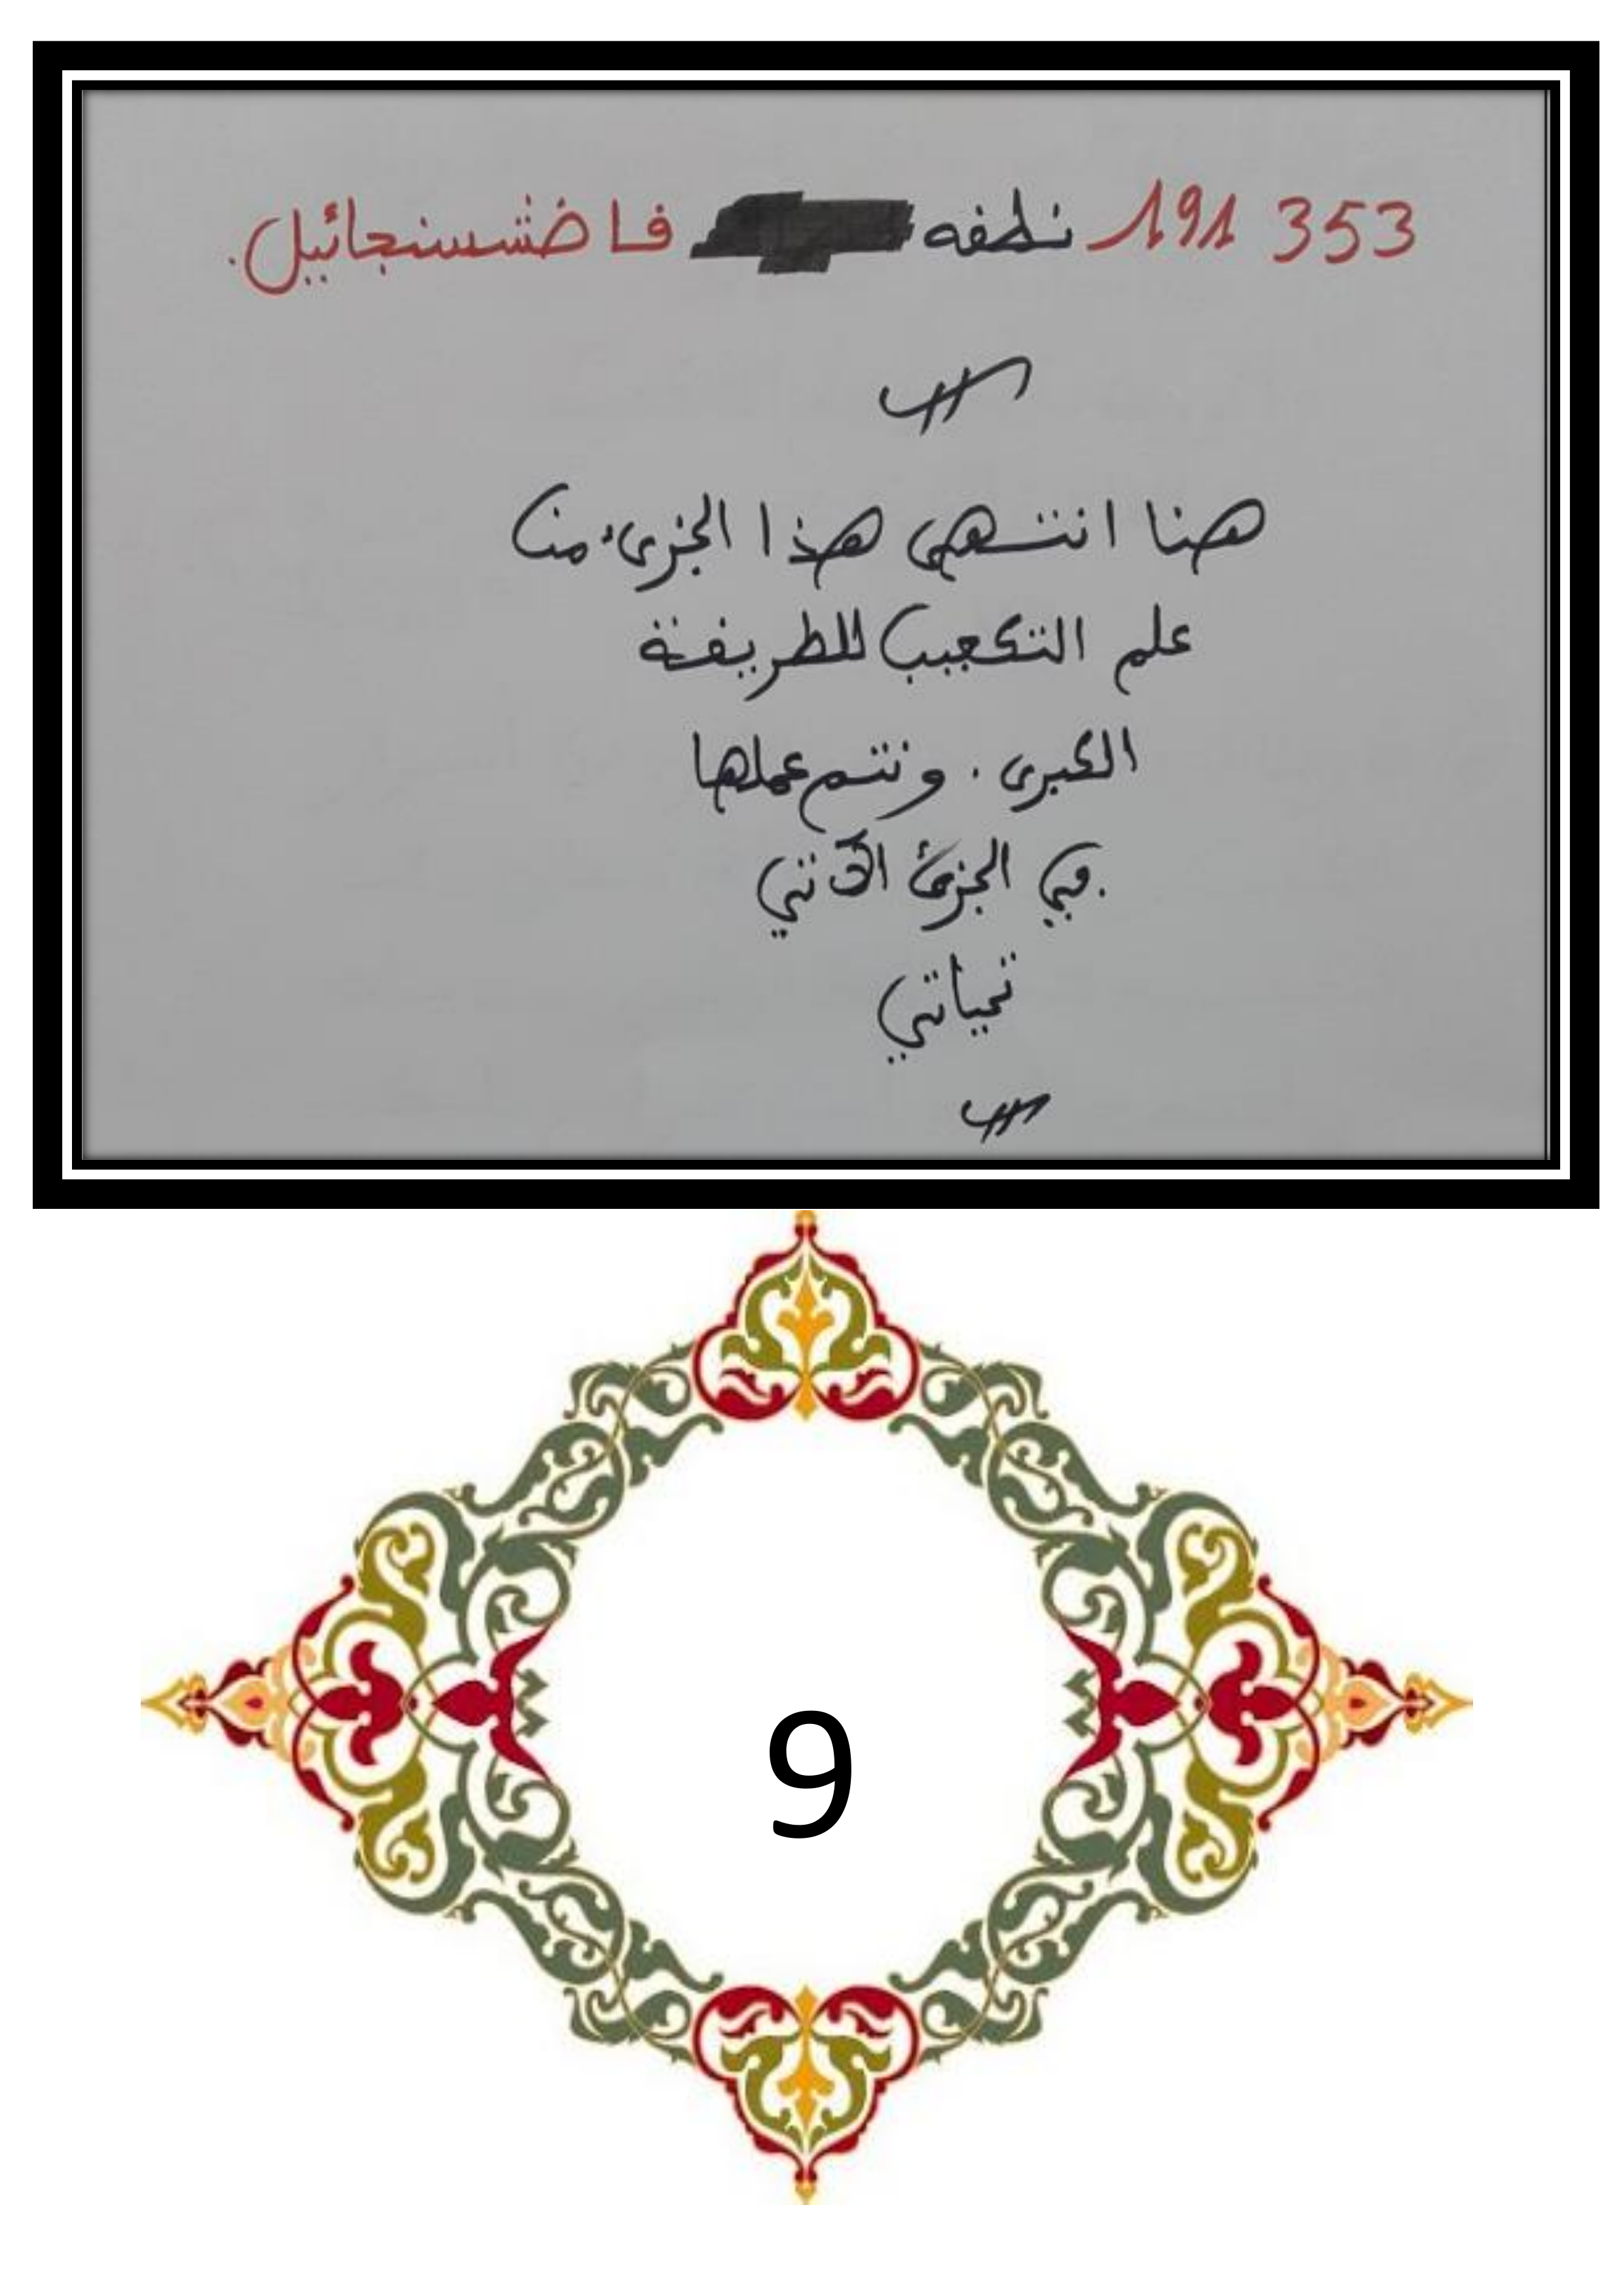 353 191 نطفه فا ضشسنجائيل.
هنا انتهى هذا الجزىء من
علم التكعيب للطريقة
الكبرى . ونتم عملها
في الجزئ الآتي
تحياتي
9